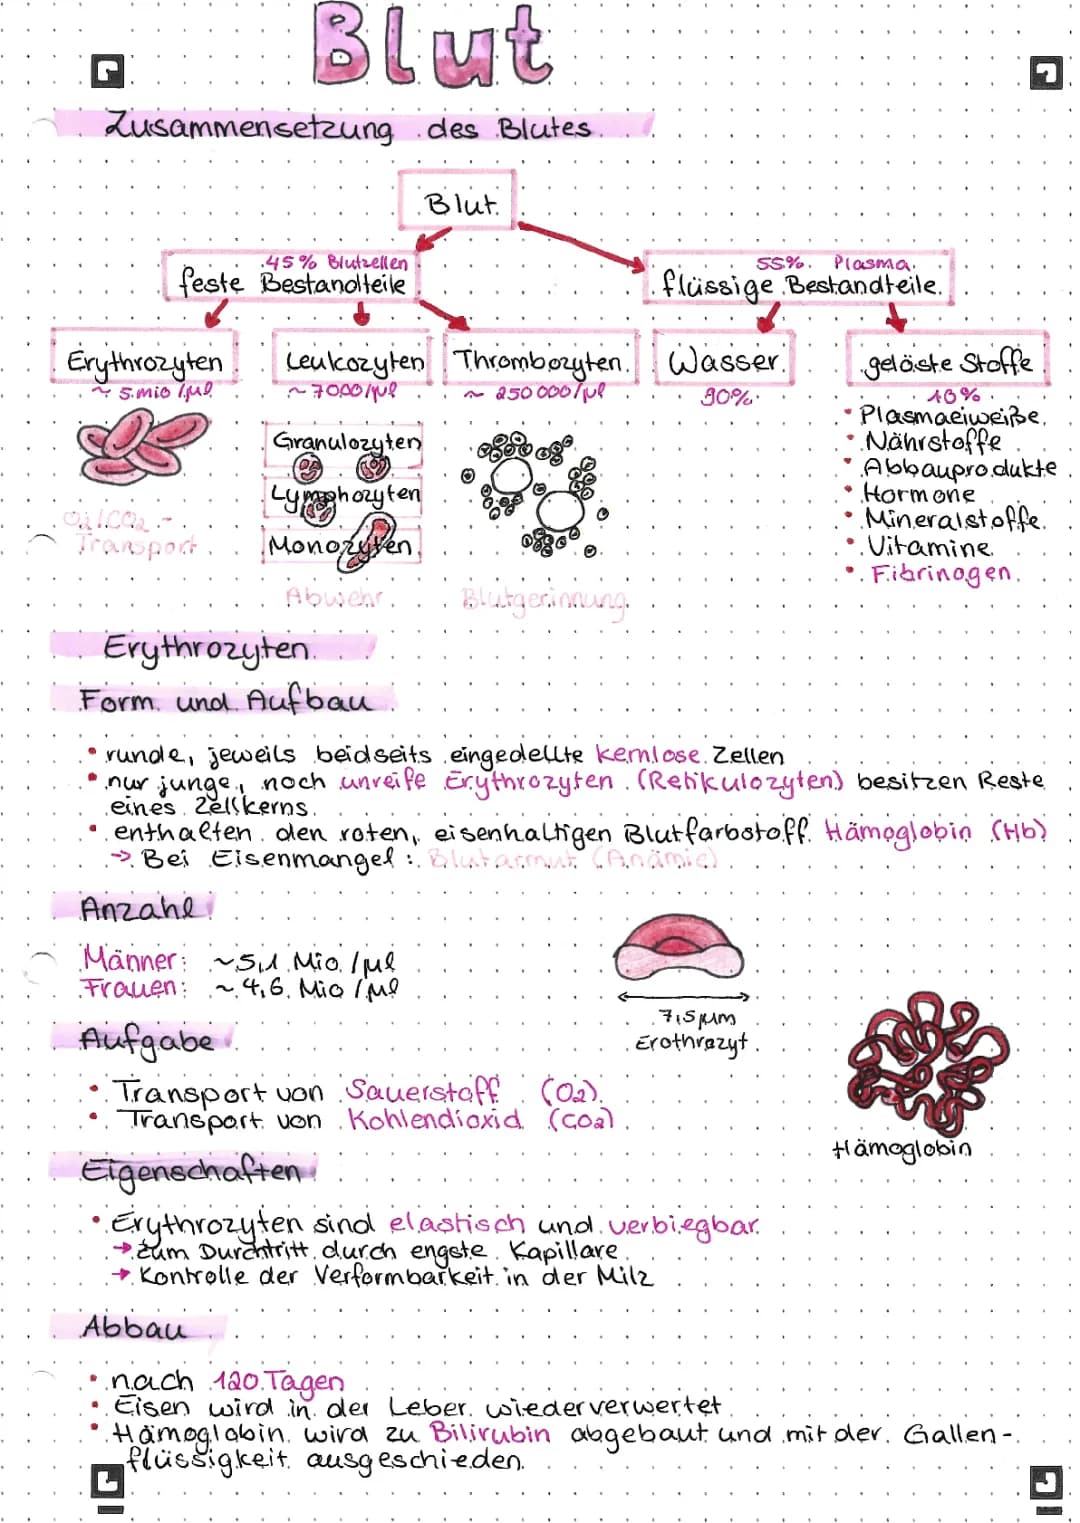 Blut
Zusammensetzung des Blutes
Blut
45% Blutzellen
feste Bestandteile
55% Plasma
flüssige Bestandteile
Erythrozyten
~ 5 mio /µl
Leukozyten
~ 7000/µl
Thrombozyten
~ 250 000/µl
Wasser
90%
gelöste Stoffe
10%
• Plasmaeiweiße
• Nährstoffe
• Abbauprodukte
• Hormone
• Mineralstoffe
• Vitamine
• Fibrinogen
O2/CO2 -
Transport
Granulozyten
Lymphozyten
Monozyten
Abwehr
Blutgerinnung
Erythrozyten
Form und Aufbau
• runde, jeweils beidseits eingedellte kernlose Zellen
• nur junge, noch unreife Erythrozyten (Retikulozyten) besitzen Reste
eines Zellkerns
• enthalten den roten, eisenhaltigen Blutfarbstoff Hämoglobin (Hb)
→ Bei Eisenmangel: Blutarmut (Anämie)
Anzahl
Männer: ~5,1 Mio /µl
Frauen: ~ 4,6 Mio /µl
7,5 µm
Erothrazyt
Hämoglobin
Aufgabe
• Transport von Sauerstoff (O2)
• Transport von Kohlendioxid (CO2)
Eigenschaften
• Erythrozyten sind elastisch und verbiegbar
→ zum Durchtritt durch engste Kapillare
→ Kontrolle der Verformbarkeit in der Milz
Abbau
• nach 120 Tagen
• Eisen wird in der Leber wiederverwertet
• Hämoglobin wird zu Bilirubin abgebaut und mit der Gallen-
flüssigkeit ausgeschieden.